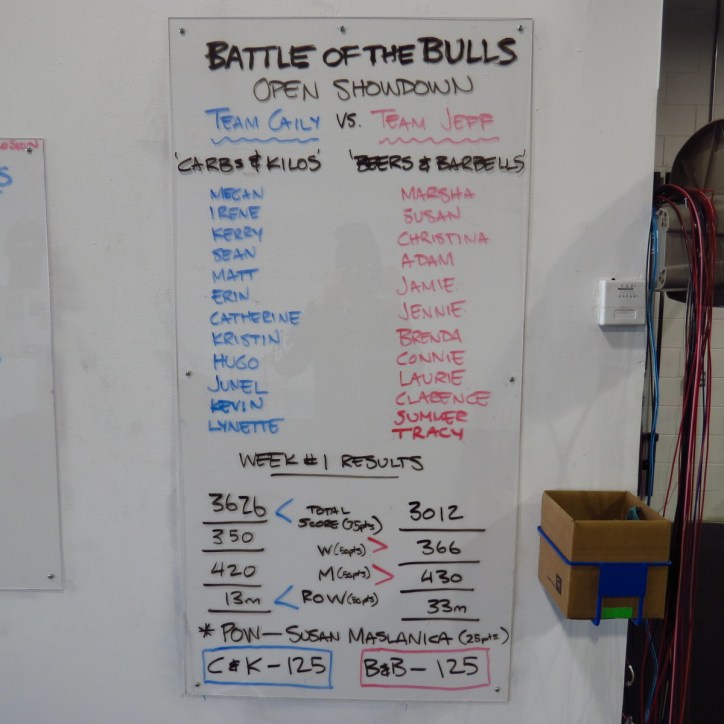 BATTLE OF THE BULLS
OPEN SHOWDOWN
TEAM CAILY VS. TEAM JEFF
'CARBS & KILOS' 'BEERS & BARBELLS'
MEGAN MARSHA
IRENE SUSAN
KERRY CHRISTINA
SEAN ADAM
MATT JAMIE
ERIN JENNIE
CATHERINE BRENDA
KRISTIN CONNIE
HUGO LAURIE
JUNEL CLARENCE
KEVIN SUMLER
LYNETTE TRACY
WEEK #1 RESULTS
3626 < TOTAL SCORE (75pts) 3012
350 W (50pts) > 366
420 M (50pts) > 430
13m < ROW (50pts) 33m
* POW — SUSAN MASLANICA (25pts.)
C & K - 125 B&B - 125